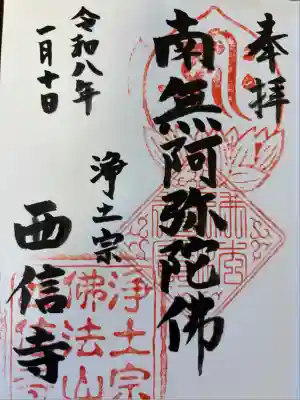 奉拝
南無阿弥陀佛
浄土宗
西信寺
令和八年
一月十日
浄土宗
佛法山